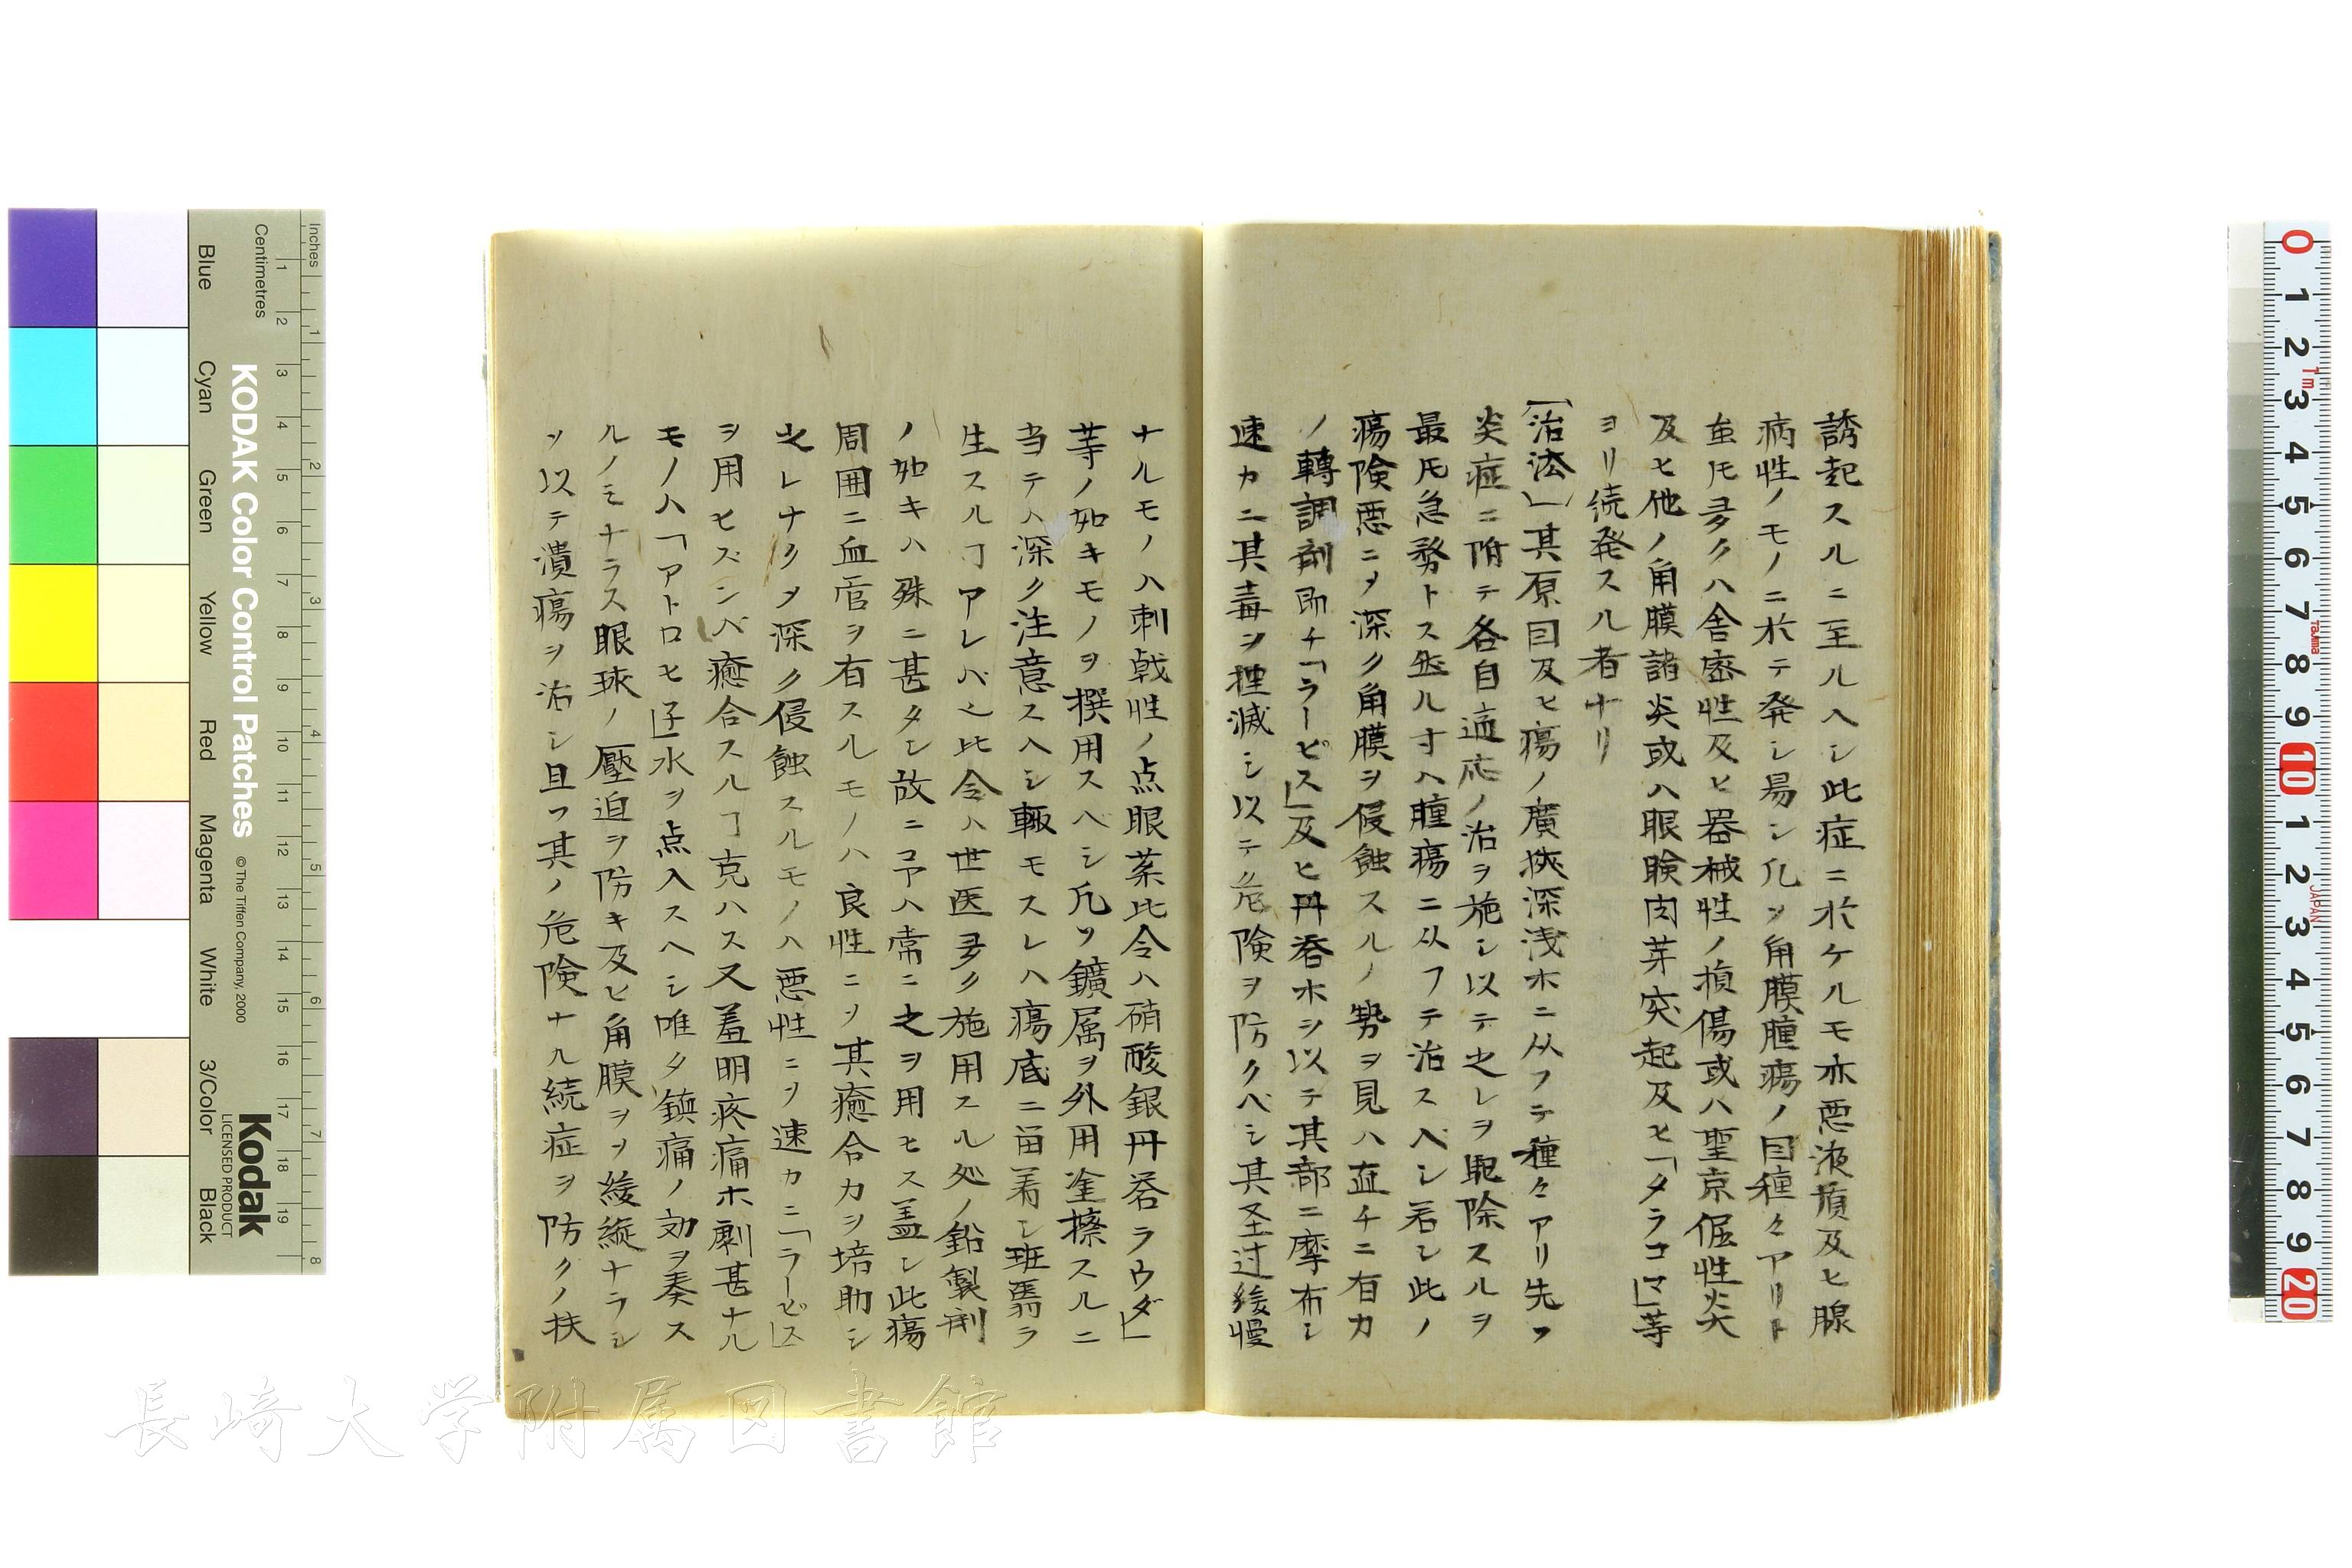 誘起スルニ至ルヘシ此症ニ於ケルモ亦悪液質及ヒ腺
病性ノモノニ於テ発シ易シ凡ソ角膜腫瘍ノ因種々アリト
虽𪜈多クハ舎密性及ヒ器械性ノ損傷或ハ聖京倔性炎
及ヒ他ノ角膜諸炎或ハ眼瞼肉芽突起及ヒ「タラコマ」等
ヨリ続発スル者ナリ
〔治法〕其原因及ヒ瘍ノ廣狹深浅ホニ从フテ種々アリ先ツ
炎症ニ随テ各自適応ノ治ヲ施シ以テ之レヲ駆除スルヲ
最𪜈急務トス然ル寸ハ腫瘍ニ从フテ治スヘシ若シ此ノ
瘍険悪ニメ深ク角膜ヲ侵蝕スルノ勢ヲ見ハ直チニ有力
ノ轉調剤即チ「ラーピス」及ヒ丹礬ホヲ以テ其部ニ摩布シ
速カニ其毒ヲ撲滅シ以テ危険ヲ防クベシ其圣过緩慢
ナルモノハ刺戟性ノ点眼薬比令ハ硝酸銀丹礬ラウダ」
等ノ如キモノヲ撰用スヘシ凡ソ鑛属ヲ外用塗擦スルニ
当テハ深ク注意スヘシ輙モスレハ瘍底ニ畄着シ斑翳ラ
生スルヿアレバ之比令ハ世医多ク施用スル処ノ鉛製剤
ノ如キハ殊ニ甚タシ故ニ予ハ常ニ之ヲ用ヒス盖シ此瘍
周囲ニ血管ヲ有スルモノハ良性ニソ其癒合力ヲ培助シ
之レナクメ深ク侵蝕スルモノハ悪性ニソ速カニ「ラーピス」
ヲ用ヒズンバ癒合スルヿ克ハス又羞明疼痛ホ劇甚ナル
モノハ「アトロヒ子」水ヲ点入スヘシ唯タ鎮痛ノ効ヲ奏ス
ルノミナラス眼球ノ壓迫ヲ防キ及ヒ角膜ヲソ緩縦ナラシ
ソ以テ潰瘍ヲ治シ且ツ其ノ危険ナル続症ヲ防クノ扶
長崎大学附属図書館
KODAK Color Control Patches
© The Tiffen Company, 2000
Kodak
LICENSED PRODUCT
Blue Cyan Green Yellow Red Magenta White 3/Color Black
Inches 1 2 3 4 5 6 7 8
Centimetres 1 2 3 4 5 6 7 8 9 10 11 12 13 14 15 16 17 18 19
0 1 2 3 4 5 6 7 8 9 10 1 2 3 4 5 6 7 8 9 20
1m TaJima JAPAN